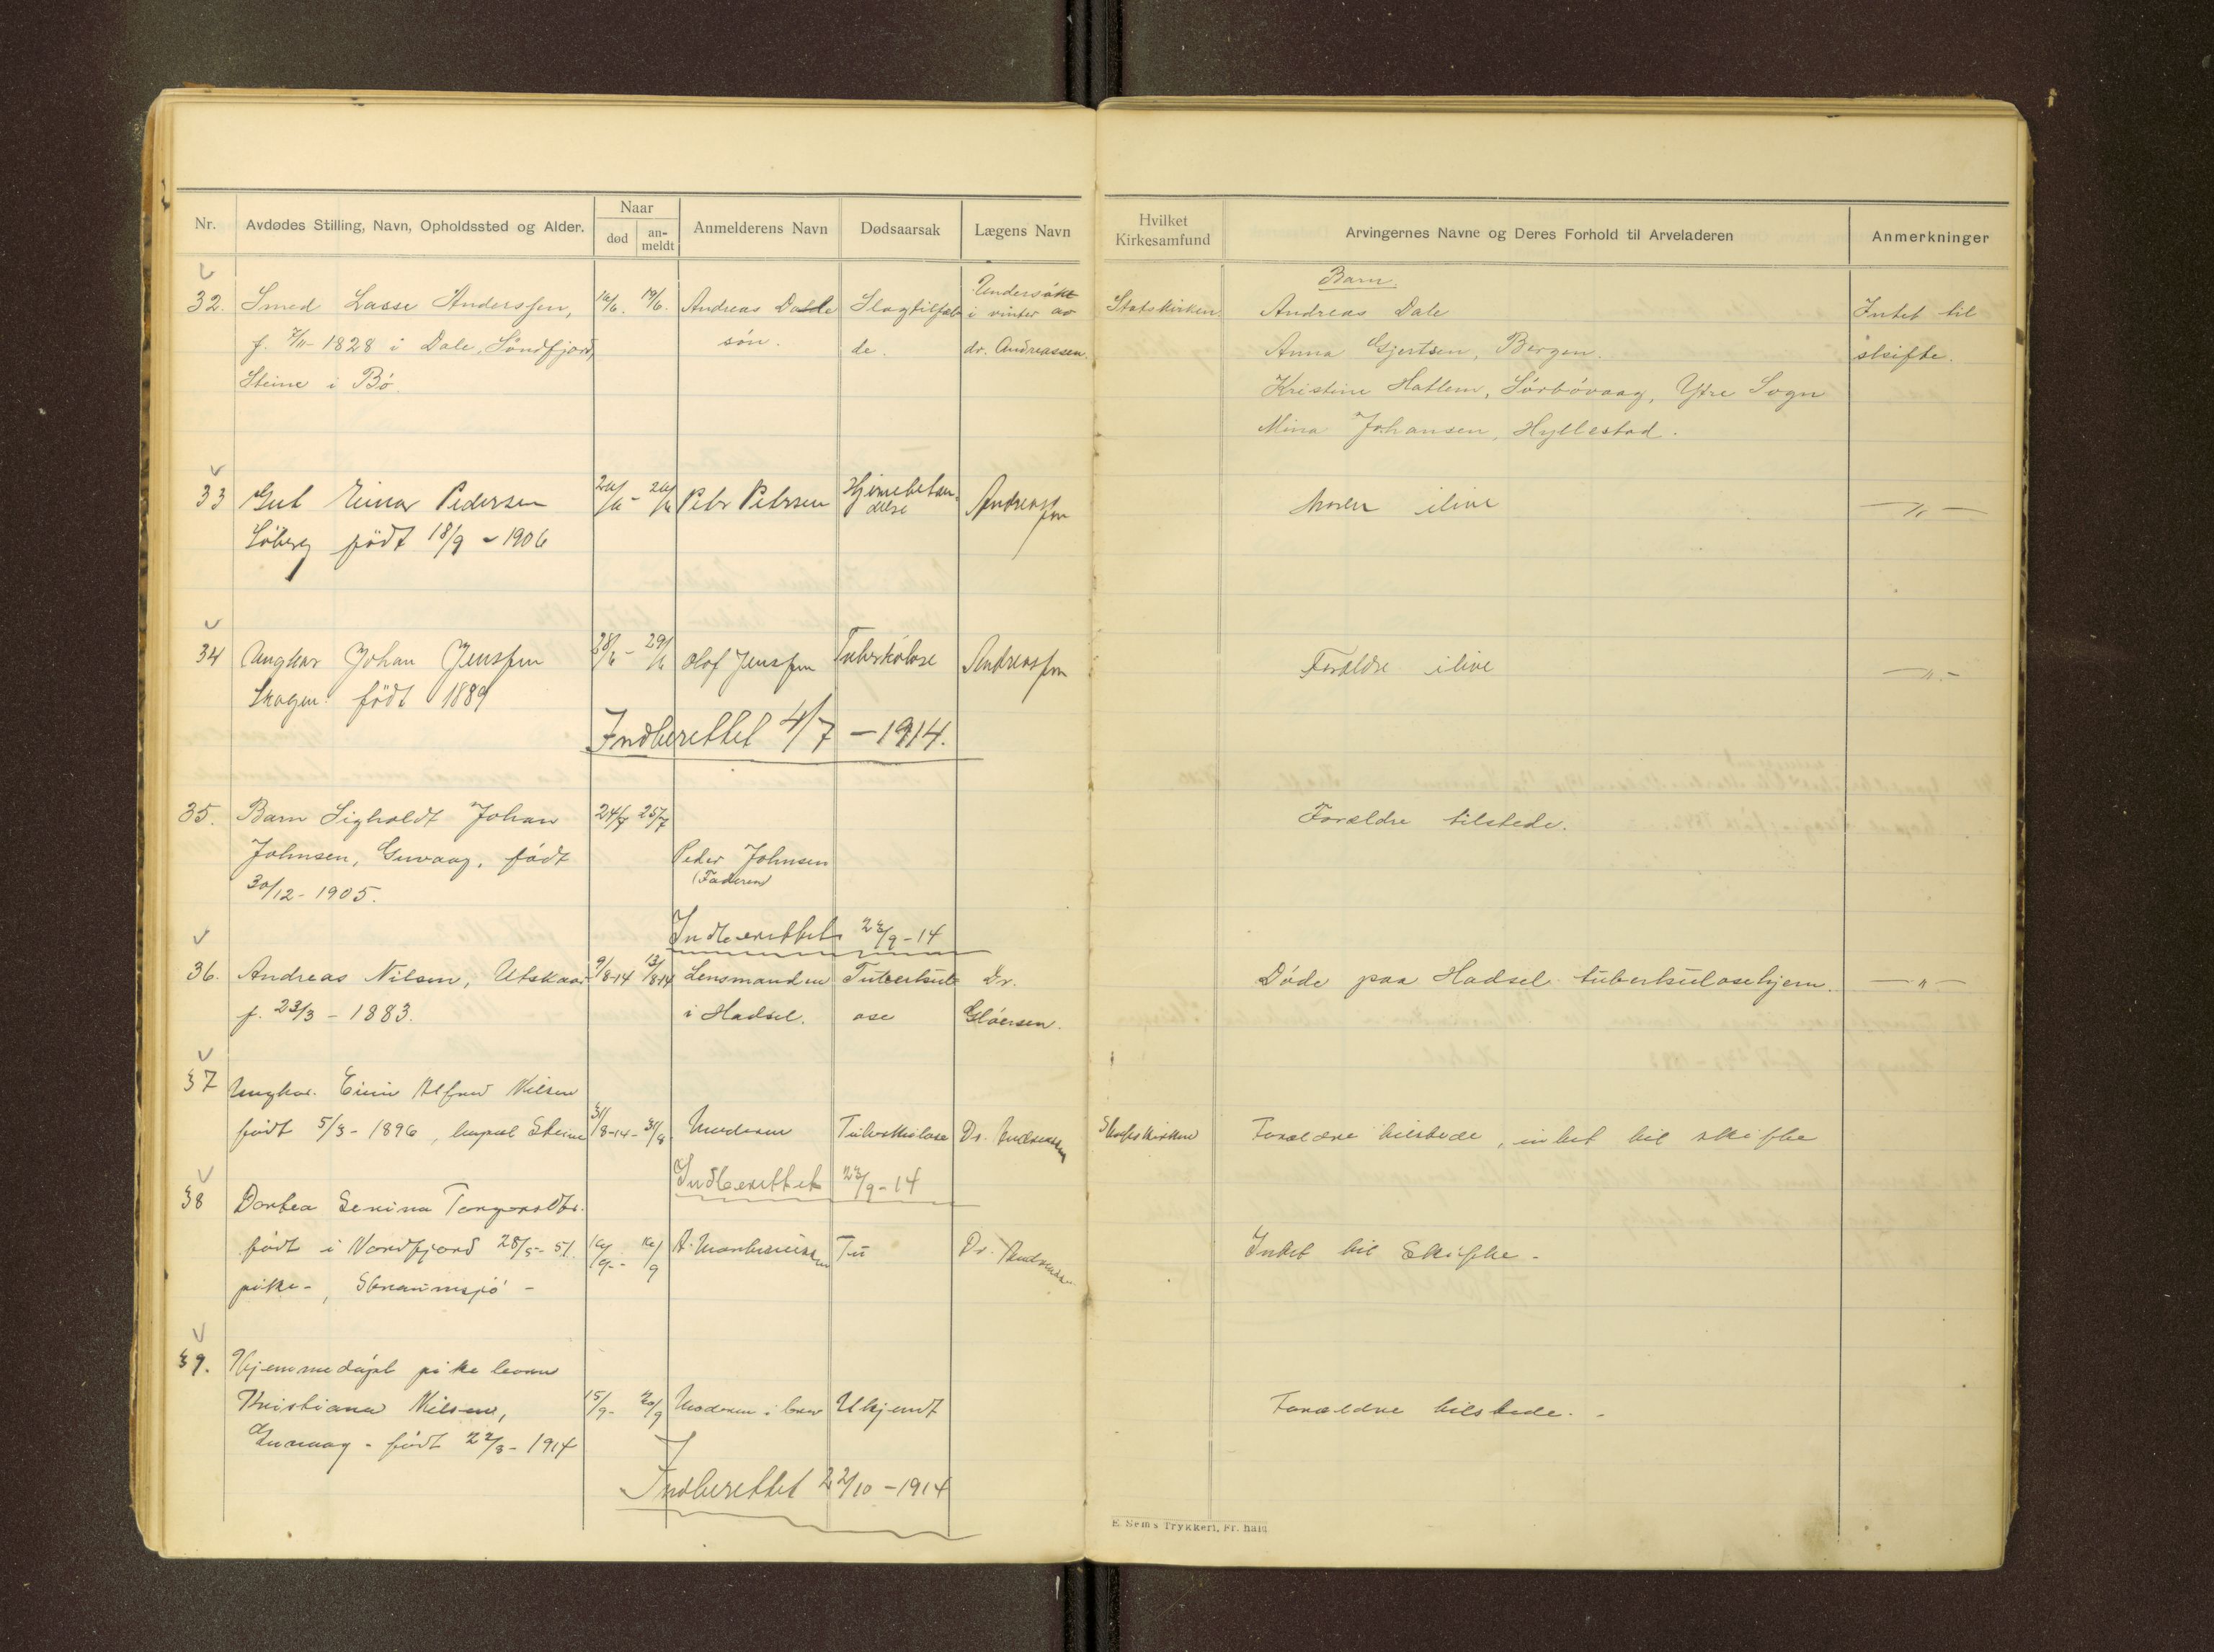 Nr.
Avdødes Stilling, Navn, Opholdssted og Alder.
Naar
død
an-
meldt
Anmelderens Navn
Dødsaarsak
Lægens Navn
Hvilket
Kirkesamfund
Arvingernes Navne og Deres Forhold til Arveladeren
Anmerkninger
32. Smed Lasse Anderssen,
f. 7/11-1828 i Dale, Söndfjord,
Steine i Bö.
16/6. 19/6.
Andreas Dale
sön.
Slagtilfæl-
de.
Undersökt
i vinter av
dr. Andreassen.
Statskirken
Barn.
Andreas Dale
Anna Gjertsen, Bergen.
Kristine Hatlem, Sörbövaag, Ytre Sogn
Mina Johansen, Hyllestad.
Intet til
skifte.
33 Gut Einar Pedersen
Söberg född 18/9 - 1906
26/6 - 26/6
Peder Pedersen
Hjernebetæn-
delse
Andreassen
Moren ilive
- " -
34 Ungkar Johan Jenssen
Skagen födt 1889
28/6 - 29/6
Olaf Jenssen
Tuberkulose
Andreassen
Forældre ilive
- " -
Indberettet 4/7 - 1914.
35. Barn Sigholdt Johan
Johnsen, Guvaag, födt
30/12 - 1905.
24/7 25/7
Peder Johnsen
(Faderen)
Forældre tilstede.
Indberettet 23/9-14
36. Andreas Nilsen, Utskaar
f. 23/3 - 1883.
9/8-14 13/8-14
Lensmanden
i Hadsel.
Tuberkul-
ose
Dr.
Glöersen.
Döde paa Hadsel tuberkulosehjem.
- " -
37 Ungkar Einar Alfred Nilsen
födt 5/3 - 1896, Steine
31/8-14 - 31/8
Moderen
Tuberkulose
Dr. Andreassen
Statskirken
Forældre tilstede, intet til skifte
Indberettet 23/9-14
38 Dortea Serina
födt i Nordfjord 28/5-51
pike -, Straumsjö -
16/9 - 16/9
A. Martinussen
Tu
Dr. Andreassen
Intet til Skifte -
39. Hjemmedöpt pike
Kristiane Nilsen,
Guvaag - födt 22/3 - 1914
15/9 - 20/9
Moderen i brev
Ukjendt
Forældre tilstede. -
Indberettet 22/10 - 1914
E. Sem's Trykkeri, Fr. hald